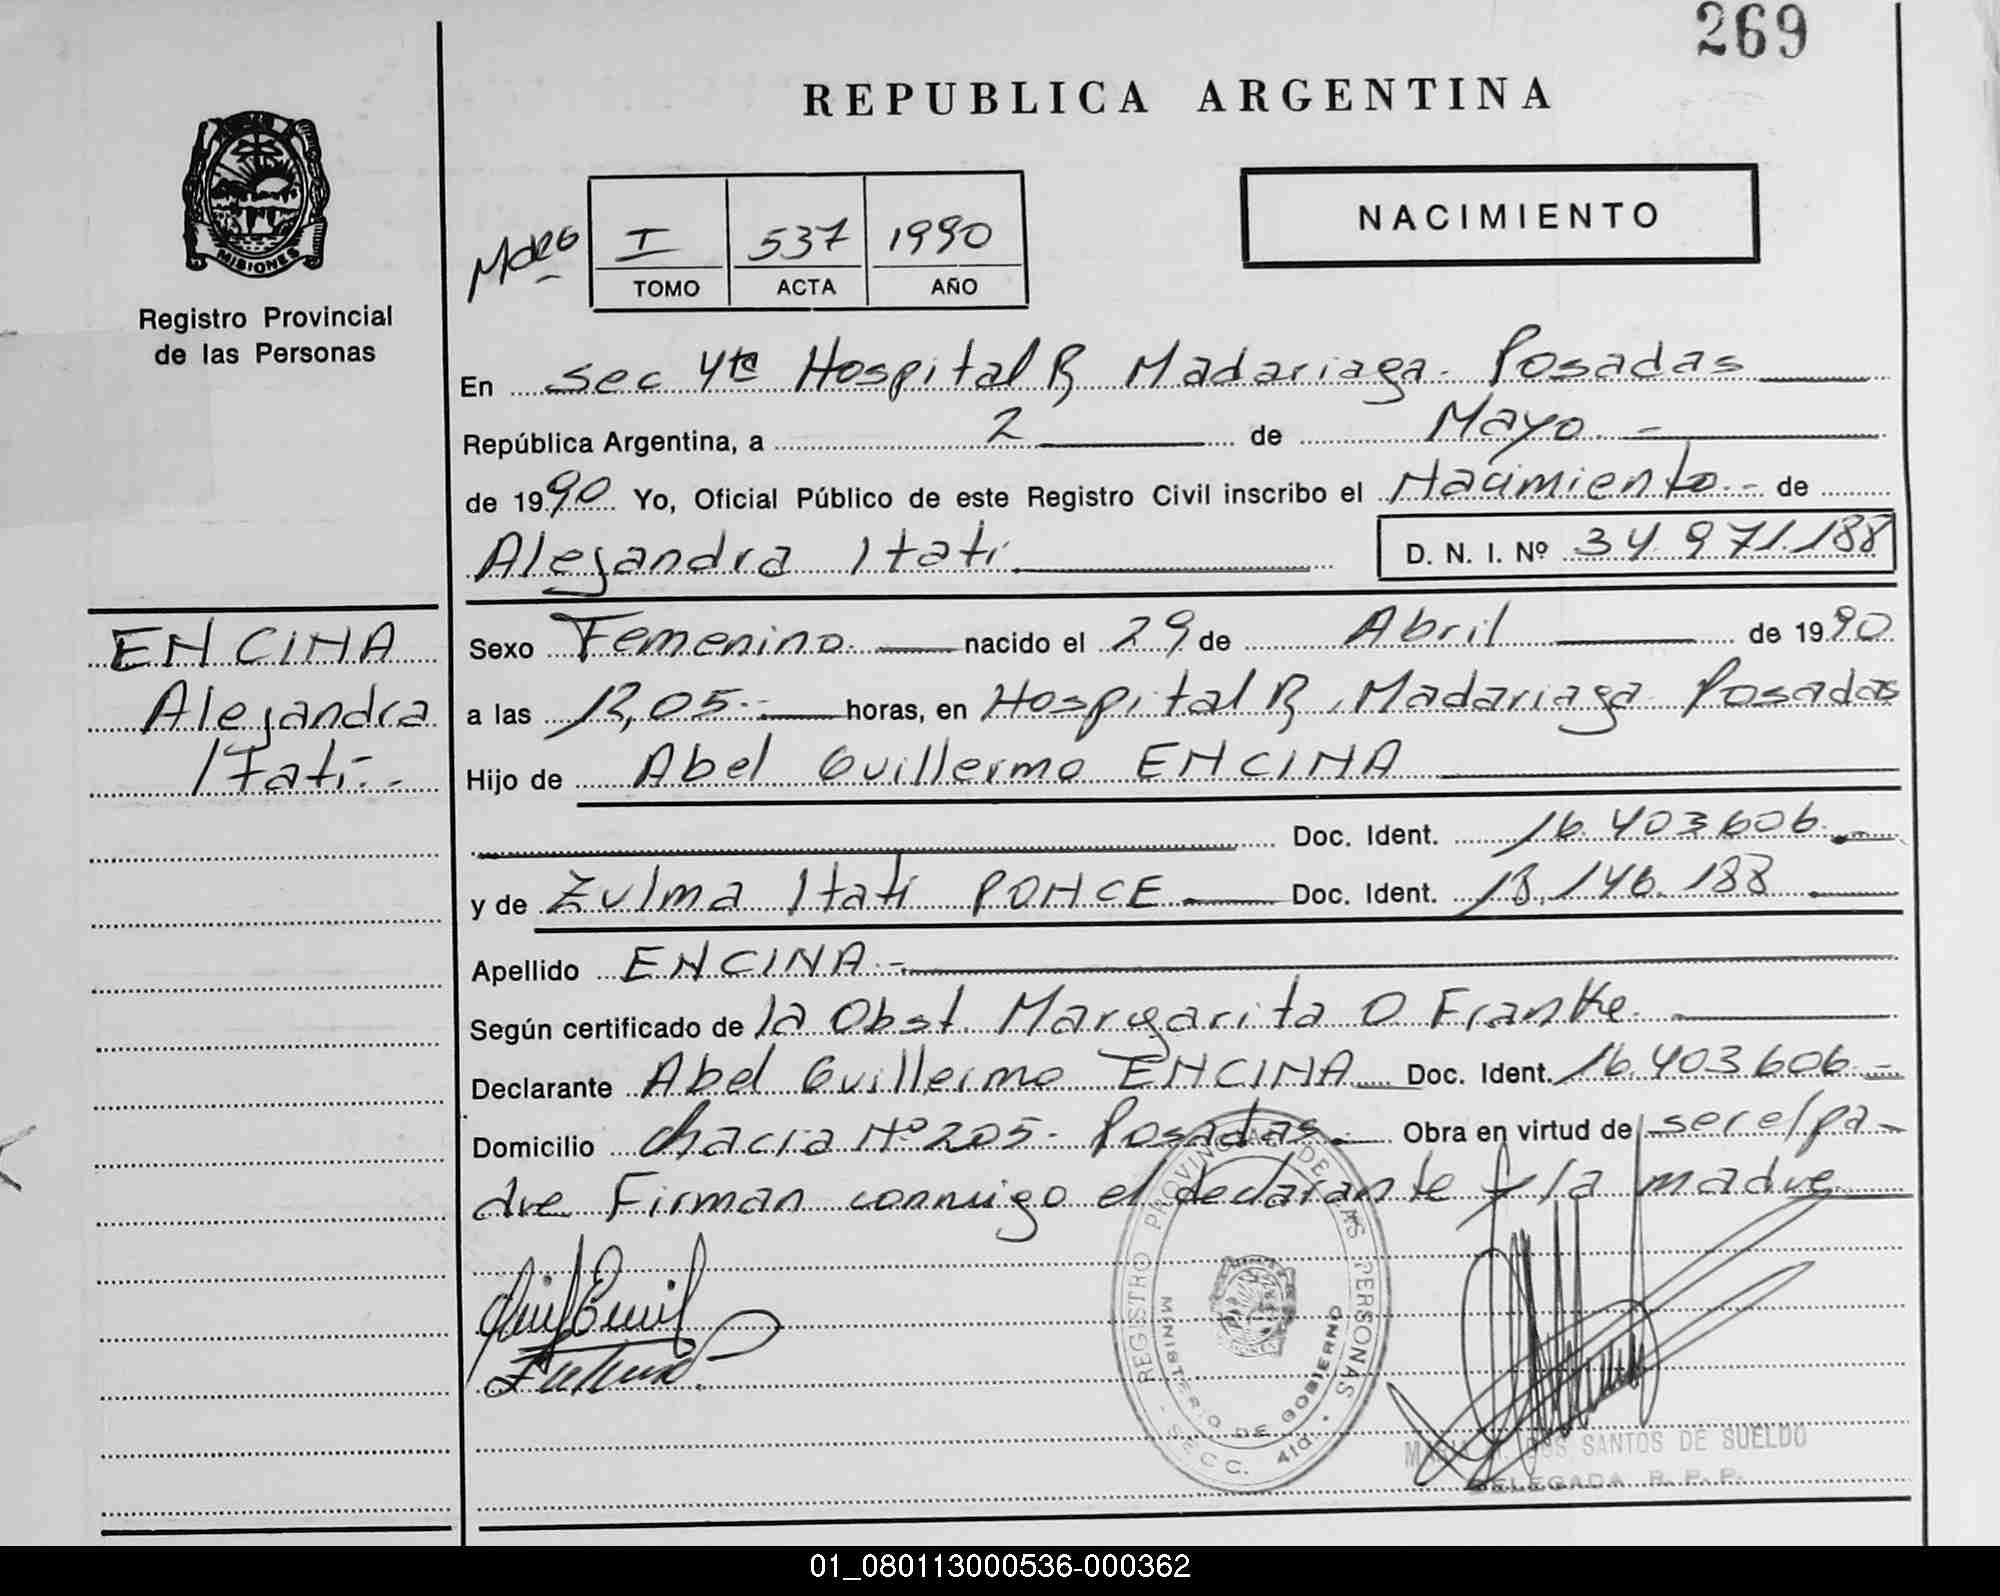 269
REPUBLICA ARGENTINA
MISIONES
Registro Provincial
de las Personas
NACIMIENTO
I 537 1990
TOMO ACTA AÑO
En sec 4ta Hospital R Madariaga. Posadas
República Argentina, a 2 de Mayo.-
de 1990 Yo, Oficial Público de este Registro Civil inscribo el Nacimiento.- de
Alejandra Itatí D. N. I. Nº 34.971.188
ENCINA
Alejandra
Itatí.-
Sexo Femenino. nacido el 29 de Abril de 1990
a las 12,05.- horas, en Hospital R. Madariaga Posadas
Hijo de Abel Guillermo ENCINA
Doc. Ident. 16.403.606.-
y de Zulma Itatí PONCE Doc. Ident. 13.146.188
Apellido ENCINA.-
Según certificado de la Obst. Margarita O Franke.
Declarante Abel Guillermo ENCINA Doc. Ident. 16.403.606.-
Domicilio chacra Nº 205. Posadas.- Obra en virtud de ser el pa-
dre Firman conmigo el declarante y la madre
REGISTRO PROVINCIAL DE LAS PERSONAS
MINISTERIO DE GOBIERNO
- SECC. 4ta. -
DOS SANTOS DE SUELDO
DELEGADA R. P. P.
01_080113000536-000362